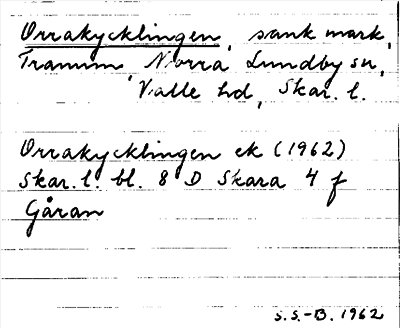 Orrakycklingen, sank mark,
Tranum Norra Lundby sn,
Valle hd, Skar. l.
Orrakycklingen ek (1962)
Skar. l. bl. 8 D Skara 4 f
Gåran
S.S.-B. 1962